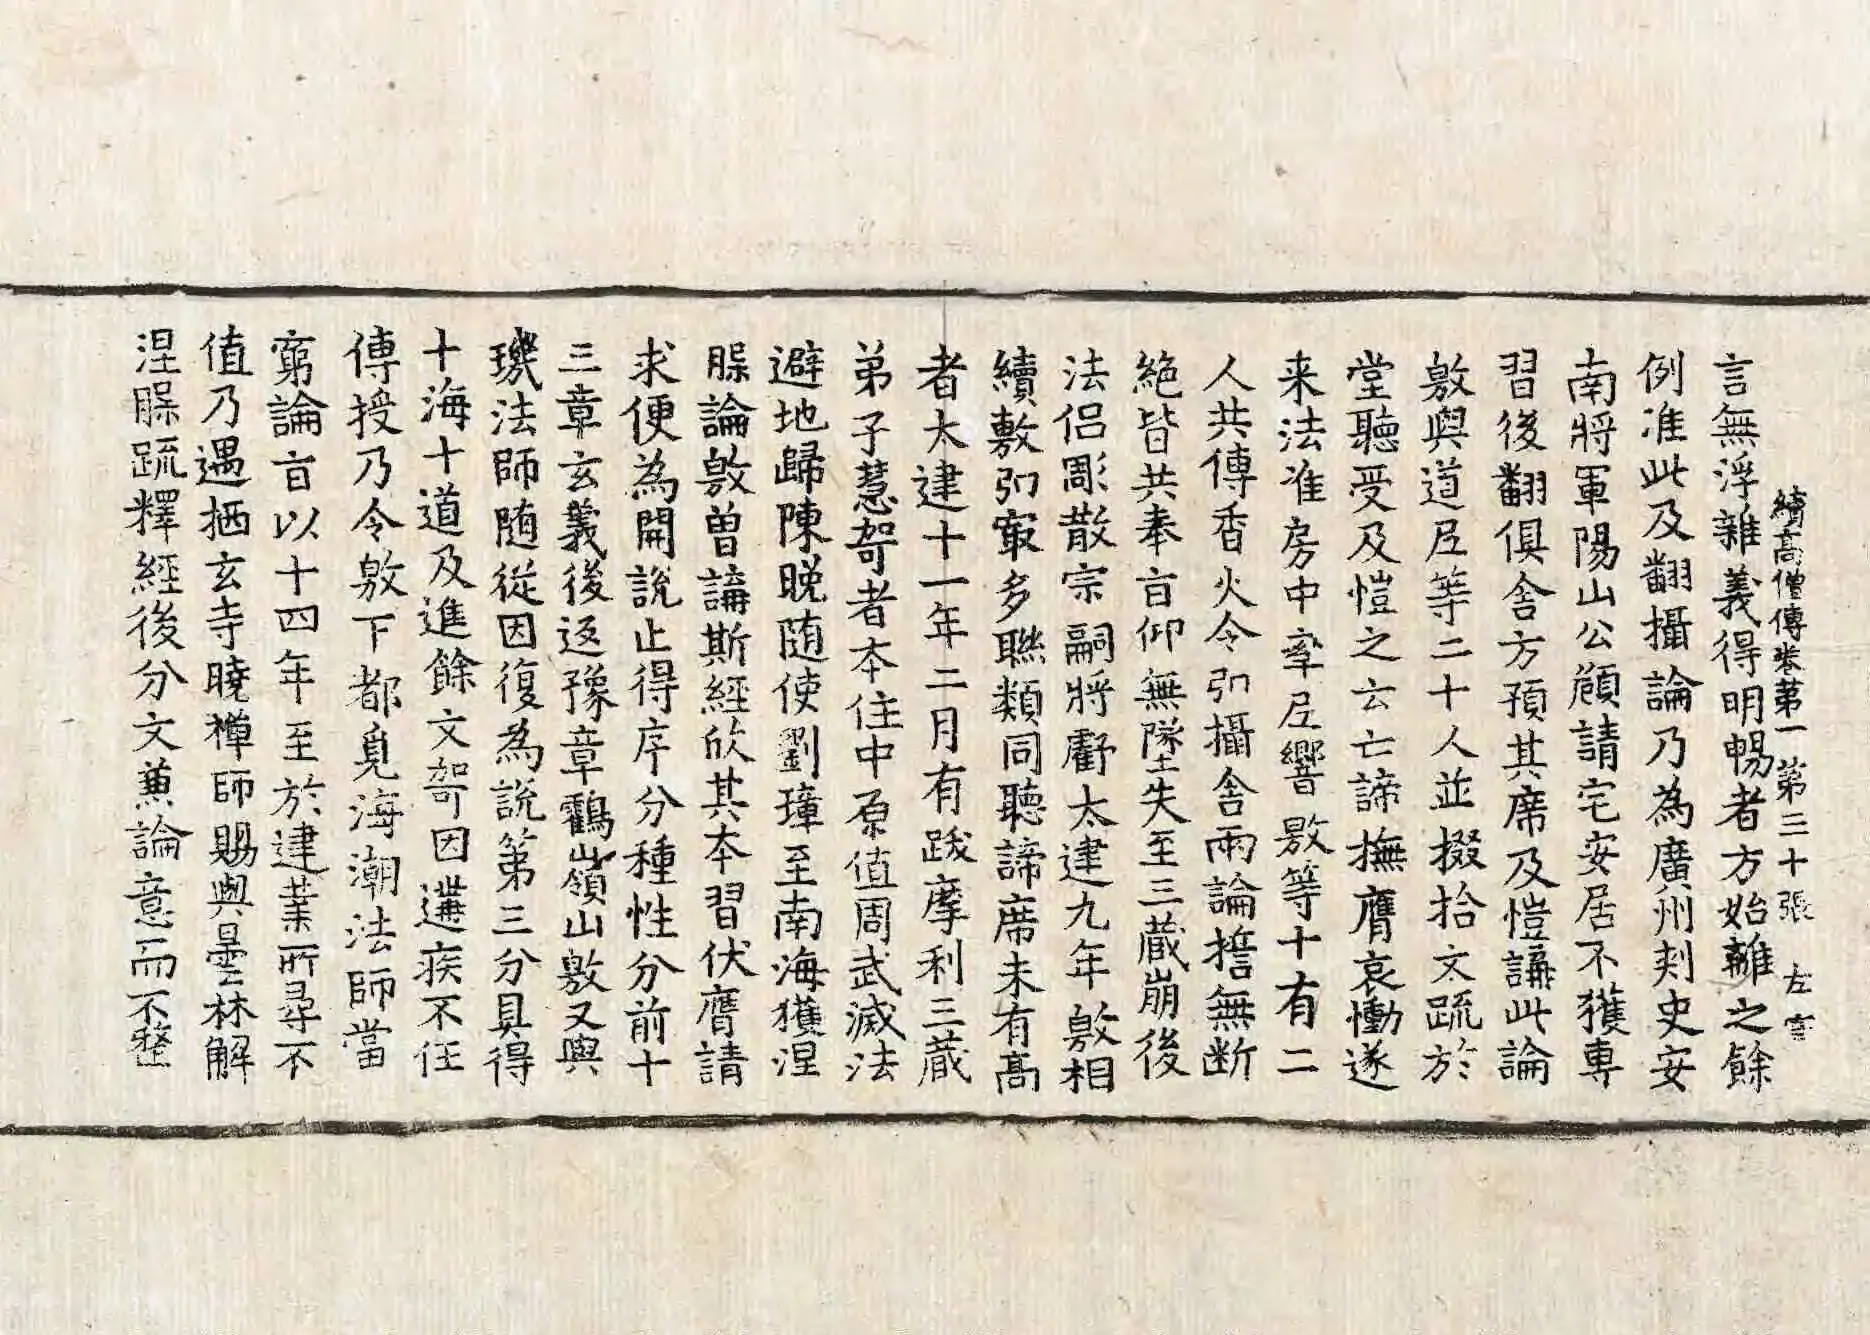 續高僧傳卷第一 第三十張 左
言無浮雜義得明暢者方始離之餘
例准此及翻攝論乃為廣州刾史安
南將軍陽山公頠請宅安居不獲專
習後翻俱舍方預其席及愷講此論
敫與道尼等二十人並掇拾文疏於
堂聽受及愷之云亡諦撫膺哀慟遂
来法准房中率尼響敫等十有二
人共傳香火令弘攝舍兩論誓無断
絶皆共奉旨仰無墜失至三藏崩後
法侣彫散宗嗣將虧太建九年敫相
續敷弘㝡多聯類同聽諦席未有髙
者太建十一年二月有跋摩利三藏
弟子慧哿者夲住中原值周武滅法
避地歸陳晚随使劉璋至南海獲涅
槃論敫曽講斯經欣其夲習伏膺請
求便為開說止得序分種性分前十
三章玄義後返豫章鸖嶺山敫又與
璣法師随從因復為說第三分具得
十海十道及進餘文哿因遘疾不任
傳授乃令敫下都覔海潮法師當
窮論旨以十四年至於建業所尋不
值乃遇栖玄寺曉禅師賜與曇林解
涅槃疏釋經後分文兼論意而不整